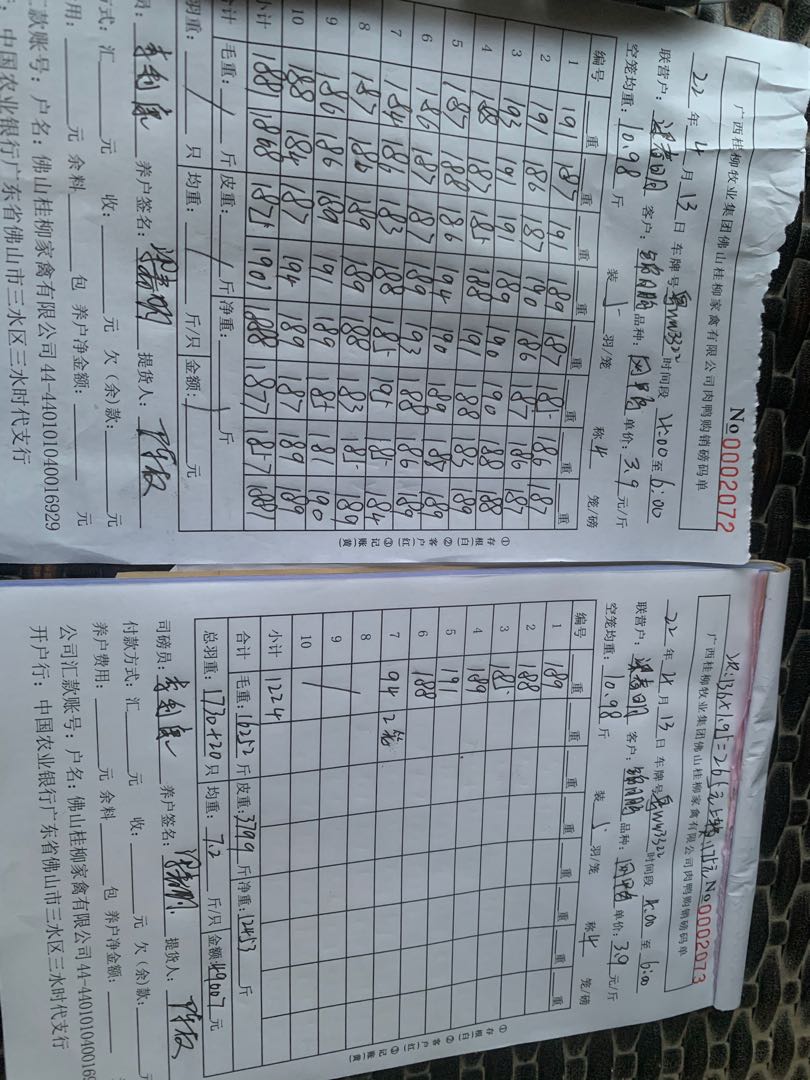 广西桂柳牧业集团佛山桂柳家禽有限公司肉鸭购销磅码单
No 0002072
22 年 4 月 13 日 车牌号 时间段 4:00 至 6:00
联营户: 客户: 品种: 单价: 3.9 元/斤
空笼均重: 10.98 斤 装 5 羽/笼 称 4 笼/磅
编号 重 重 重 重 重 重 重 重
1 191 187 191 189 187 185 186 187
2 191 186 187 190 186 187 186 187
3 193 191 191 189 190 190 188 188
4 188 187 185 188 191 188 183 189
5 187 188 186 194 190 189 188 189
6 186 187 187 189 193 188 186 189
7 184 186 183 188 185 195 185 184
8 187 186 189 189 188 183 185 189
9 186 186 189 191 189 185 181 190
10 188 184 187 194 189 187 189 189
小计 1881 1868 1875 1901 1888 1877 1857 1881
合计 毛重: / 斤 皮重: / 斤 净重: / 斤
羽重: / 只 均重: / 斤/只 金额: / 元
养户签名: 提货人:
方式: 汇 元 收: 元 欠(余)款: 元
用: 元 余料 包 养户净金额: 元
汇款账号: 户名: 佛山桂柳家禽有限公司 44-440101040016929
: 中国农业银行广东省佛山市三水区三水时代支行
①存根(白) ②客户(红) ③记账(黄)
广西桂柳牧业集团佛山桂柳家禽有限公司肉鸭购销磅码单
No 0002073
22 年 4 月 13 日 车牌号 时间段 4:00 至 6:00
联营户: 客户: 品种: 单价: 3.9 元/斤
空笼均重: 10.98 斤 装 5 羽/笼 称 4 笼/磅
编号 重 重 重 重 重 重 重 重
1 189
2 188
3 185
4 189
5 191
6 188
7 94 2笼
8
9 /
10
小计 1224
合计 毛重: 16252 斤 皮重: 3799 斤 净重: 12453 斤
总羽重: 1730+20 只 均重: 7.2 斤/只 金额: 49007 元
司磅员: 养户签名: 提货人:
付款方式: 汇 元 收: 元 欠(余)款: 元
养户费用: 元 余料 包 养户净金额:
公司汇款账号: 户名: 佛山桂柳家禽有限公司 44-4401010400169
开户行: 中国农业银行广东省佛山市三水区三水时代支行
①存根(白) ②客户(红) ③记账(黄)